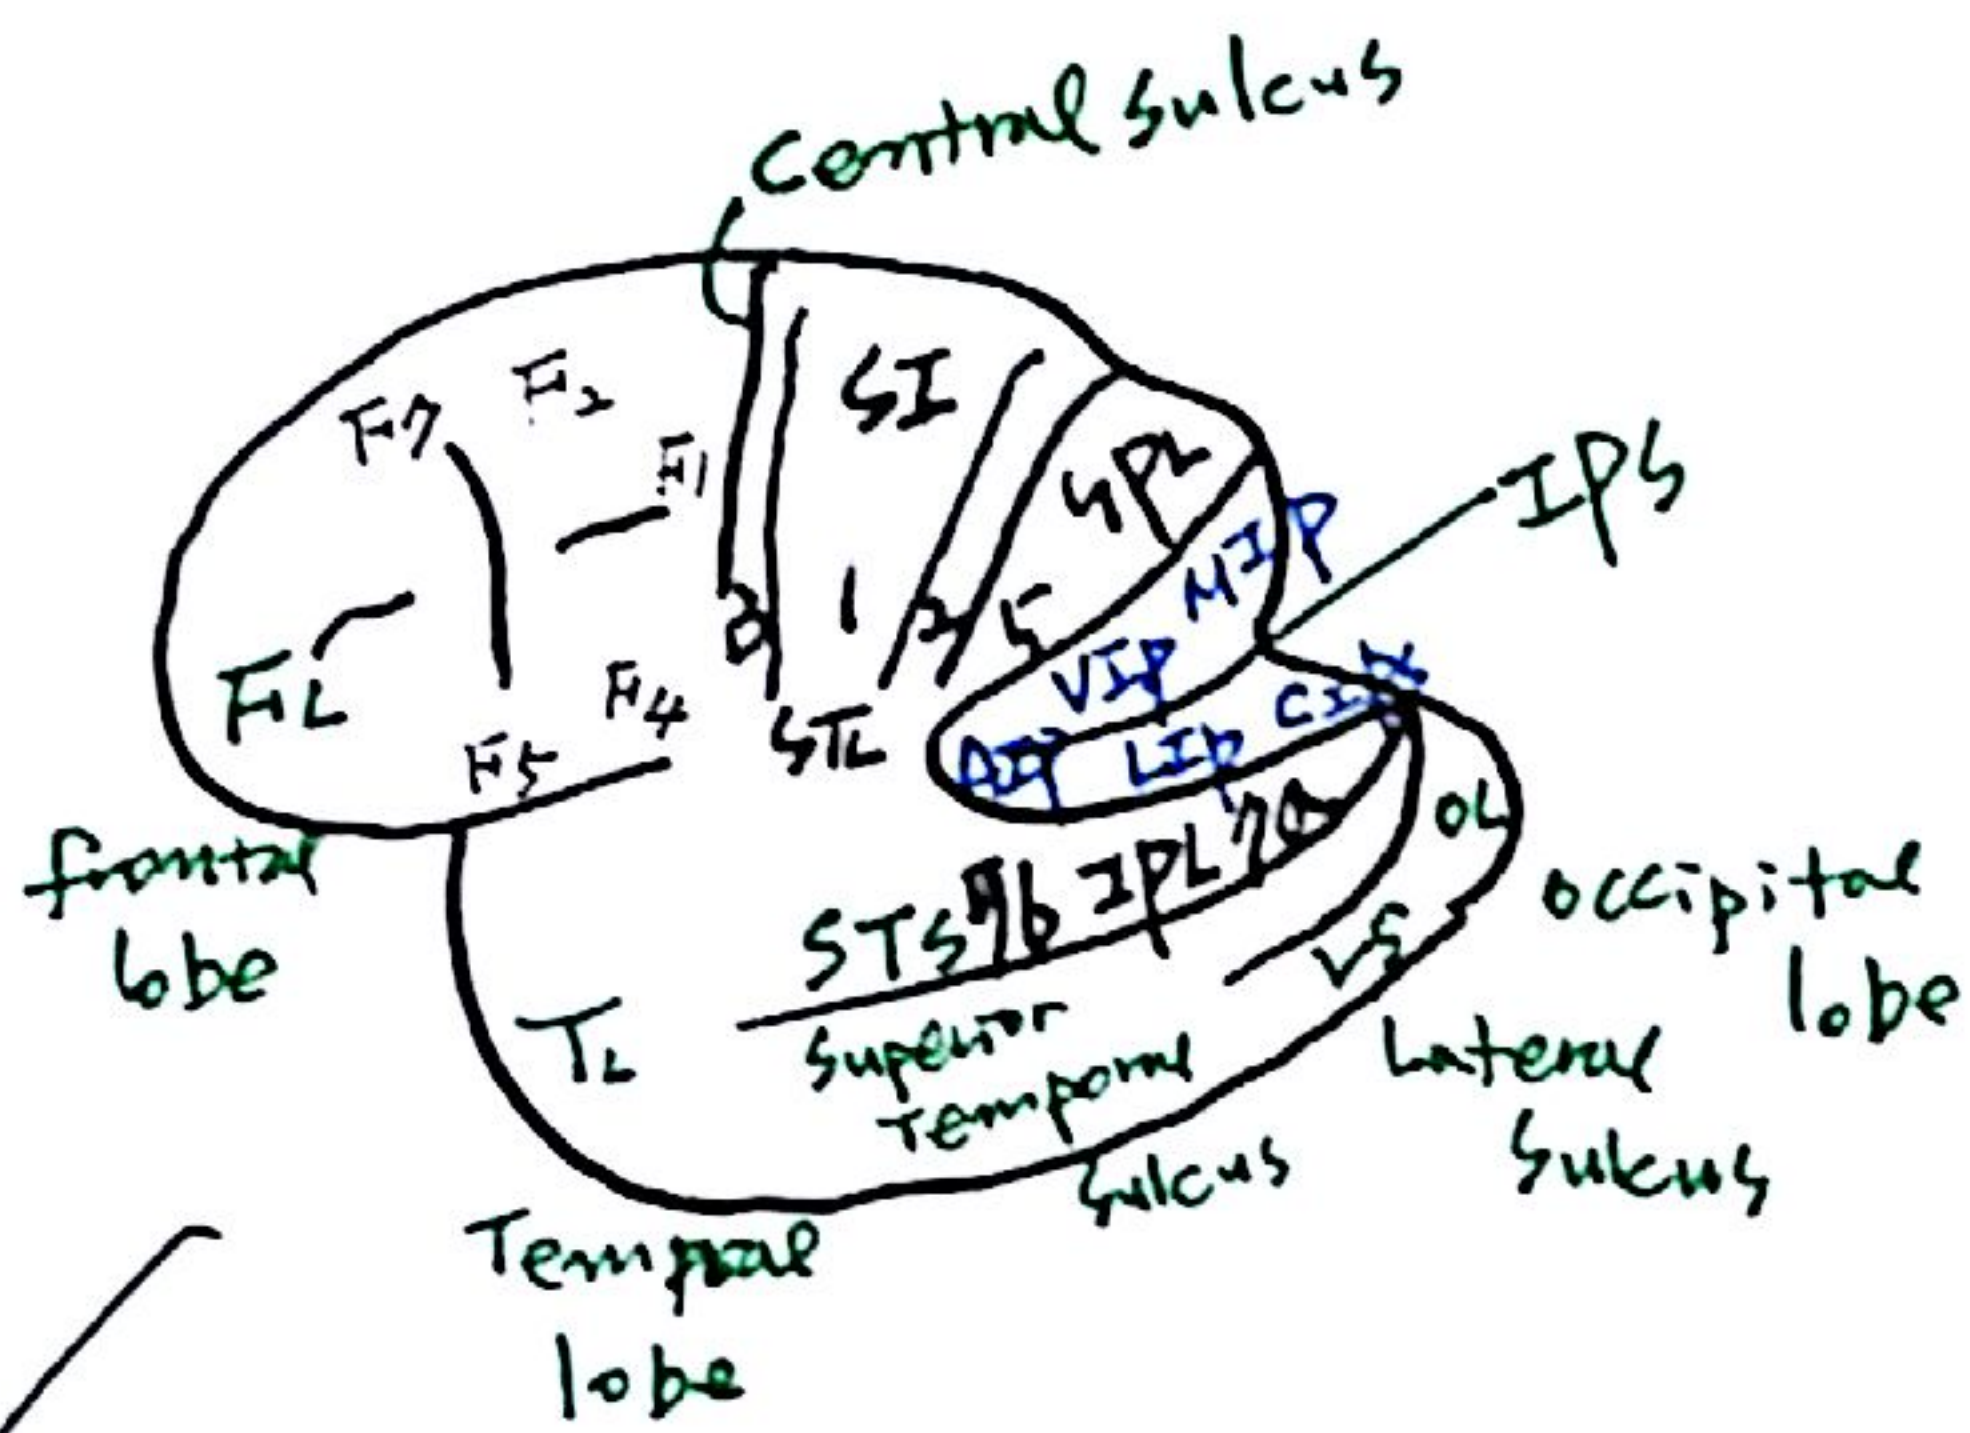 Central sulcus
F7
F2
F1
SI
SPL
MIP
IPS
3
1
2
5
VIP
CIP
FL
F4
F5
STL
AIP
LIP
OL
7a
IPL
7b
STS
VS
frontal
lobe
occipital
lobe
TL
Superior
Temporal
sulcus
Lateral
Sulcus
Temporal
lobe